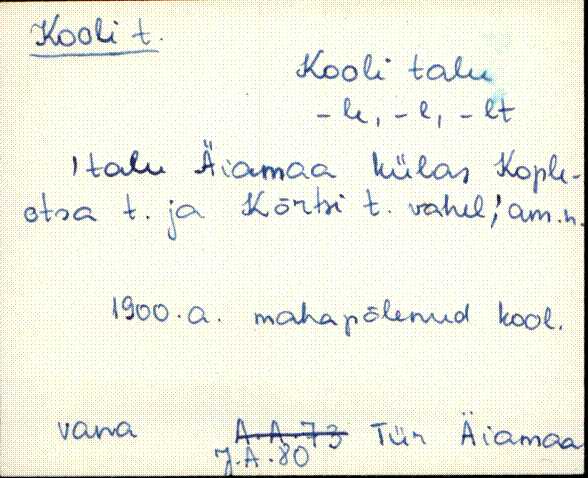 Kooli t.
Kooli talu
-le, -l, -lt
'talu Äiamaa külas Kople-
otsa t. ja Kõrtsi t. vahel,' am.n.
1900.a. mahapõlenud kool.
vana A.A.73 Tür Äiamaa
J.A.80